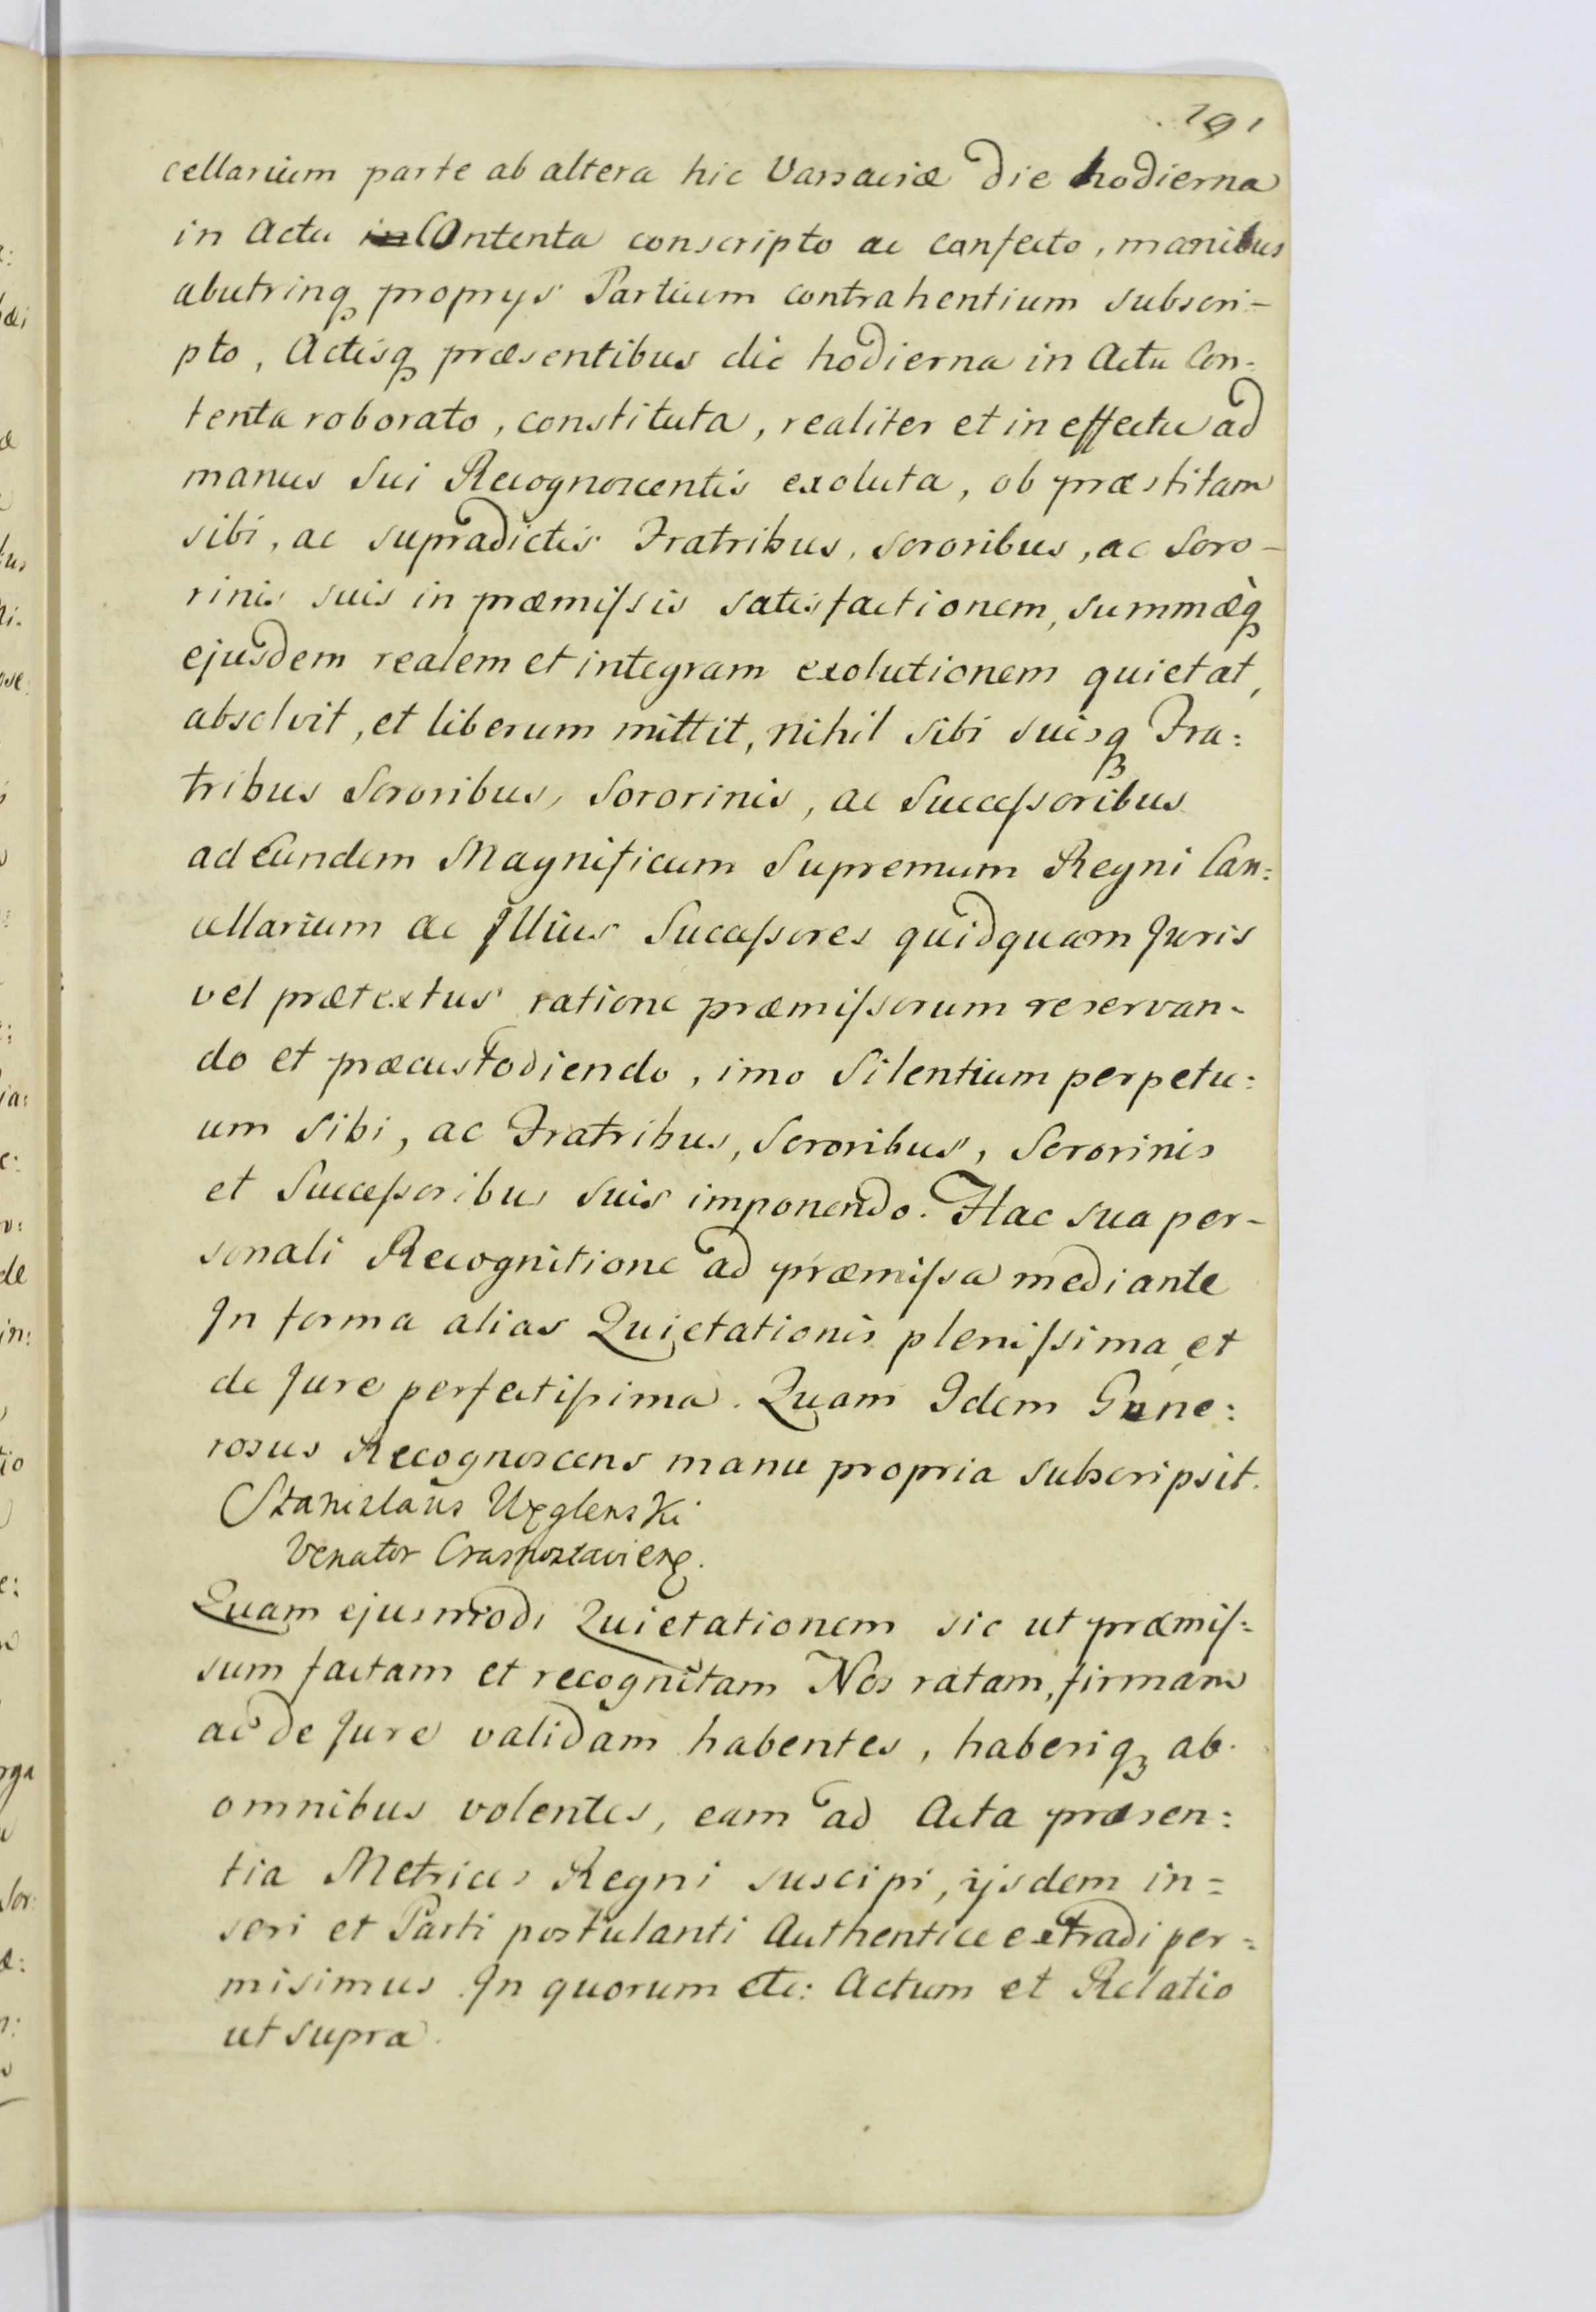 191
cellarium parte ab altera hic Varsaviæ die hodierna
in Actu Contenta conscripto ac confecto, manibus
abutrinq proprys Partium contrahentium subscri-
pto, Actisq præsentibus die hodierna in Actu Con:
tenta roborato, constituta, realiter et in effectu ad
manus Sui Recognoscentis exoluta, ob præstitam
sibi, ac supradictis Fratribus, sororibus, ac Soro-
rinis suis in præmissis satisfactionem, summæq
ejusdem realem et integram exolutionem quietat,
absolvit, et liberum mittit, nihil sibi suisq Fra:
tribus Sororibus, Sororinis, ac Successoribus
ad Eundem Magnificum Supremum Regni Can:
cellarium ac Illius Successores quidquam Juris
vel prætextus ratione præmissorum reservan-
do et præcustodiendo, imo Silentium perpetu:
um Sibi, ac Fratribus, Sororibus, Sororinis
et Successoribus suis imponendo. Hac sua per-
sonali Recognitione ad præmissa mediante
In forma alias Quietationis plenissima et
de Jure perfectissima. Quam Idem Gene:
rosus Recognoscens manu propria subscripsit.
Stanislaus Uzglenski
Venator Crasnostaviens.
Quam ejusmodi Quietationem sic ut præmis:
sum factam et recognitam Nos ratam, firmam
ac de Jure validam habentes, haberiq ab
omnibus volentes, eam ad Acta præsen:
tia Metrices Regni suscipi, ijsdem in=
seri et Parti postulanti Authentice extradi per=
misimus. In quorum etc: Actum et Relatio
ut supra.